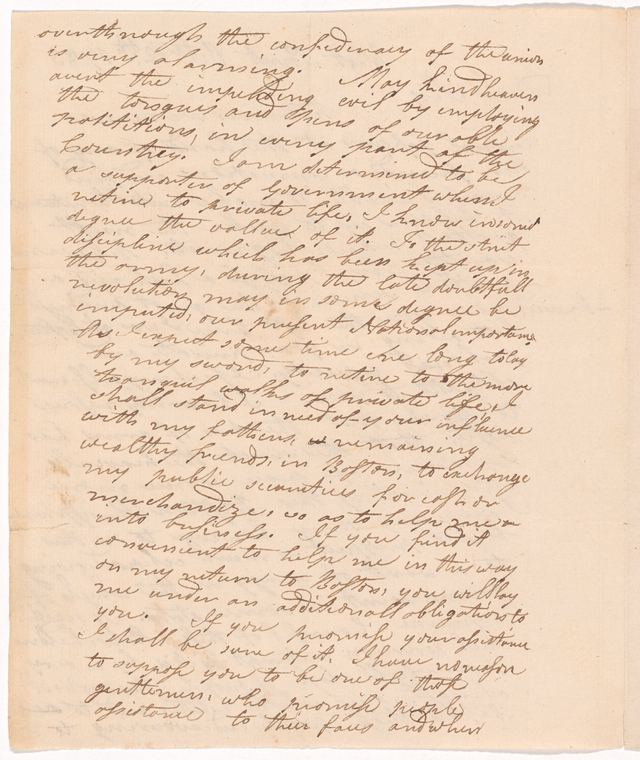 overthrough the confediracy of the union
is very alarming. May kind heaven
avert the impending evil by employing
the tongues and pens of our able
polititions, in every part of the
Countrey. I am determined to be
a supporter of Government when I
retire to private life, I know in some
degree the vallue of it. To the strict
discipline which has been kept up in
the army, during the late doubtfull
revolution may in some degree be
imputed, our present National importance
As I expect some time ere long to lay
by my sword, to retire to the more
tranquil walks of private life, I
shall stand in need of your influence
with my fathers, remaining
wealthy friends, in Boston, to exchange
my public securities for cash or
merchandize, so as to help me
into business. If you find it
convenient to help me in this way
on my return to Boston, you will lay
me under an additionall obligation to
you. If you promise your assistance
I shall be sure of it. I have no reason
to suppose you to be one of those
gentlemen, who promise people
assistance to their faces and when